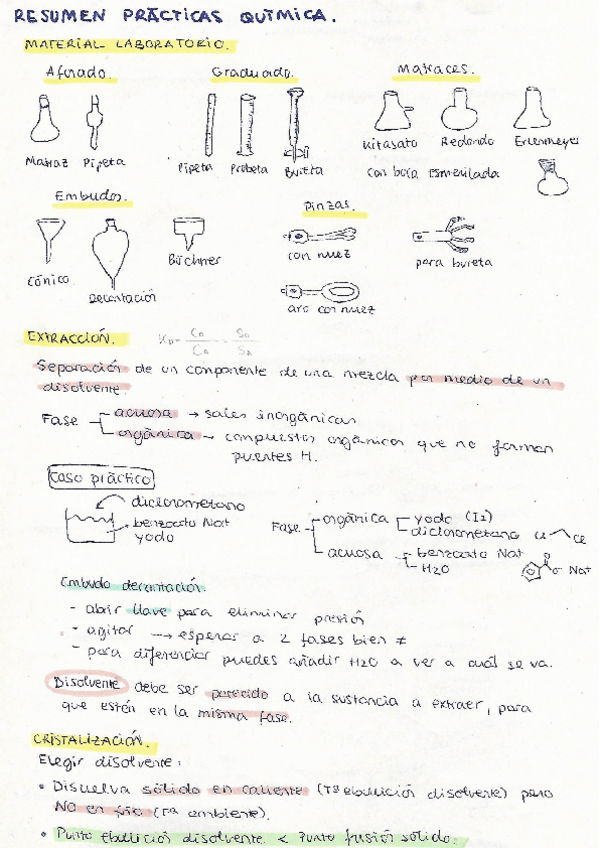 RESUMEN PRÁCTICAS QUÍMICA.
MATERIAL LABORATORIO.
Aforado. Graduado. Matraces.
Matraz Pipeta Pipeta Probeta Bureta Kitasato Redondo Erlenmeyer
con boca esmerilada
Embudos. Pinzas.
Cónico Decantación Büchner con nuez para bureta
aro con nuez
EXTRACCIÓN. KD = Co/Ca = So/Sa
Separación de un componente de una mezcla por medio de un
disolvente.
Fase acuosa → sales inorgánicas
orgánica → compuestos orgánicos que no forman
puentes H.
Caso práctico
diclorometano
benzoato Na+
yodo
Fase orgánica yodo (I2)
diclorometano Cl Cl
acuosa benzoato Na+
H2O O- Na+
Embudo decantación.
- abrir llave para eliminar presión
- agitar → esperar a 2 fases bien ≠
- para diferenciar puedes añadir H2O a ver a cuál se va.
Disolvente debe ser parecido a la sustancia a extraer, para
que estén en la misma fase.
CRISTALIZACIÓN.
Elegir disolvente:
• Disuelva sólido en caliente (Tª ebullició disolvente) pero
NO en frío (Tª ambiente).
• Punto ebullició disolvente < Punto fusión sólido.